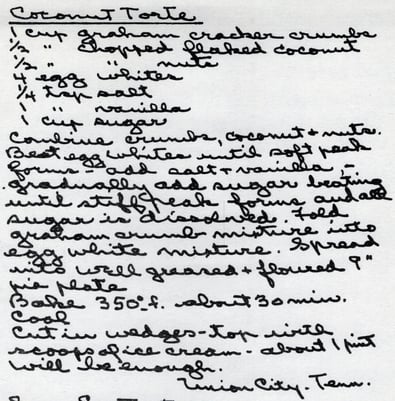 Coconut Torte
1 cup graham cracker crumbs
1/2 " chopped flaked coconut
1/2 " " nuts
4 egg whites
1/4 tsp salt
1 " vanilla
1 cup sugar
Combine crumbs, coconut + nuts.
Beat egg whites until soft peak
forms - add salt + vanilla -
gradually add sugar beating
until stiff peak forms and all
sugar is dissolved. Fold
graham crumb mixture into
egg white mixture. Spread
into well greased + floured 9"
pie plate
Bake 350° f. about 30 min.
Cool
Cut in wedges - top with
scoops of ice cream - about 1 pint
will be enough.
Union City, Tenn.